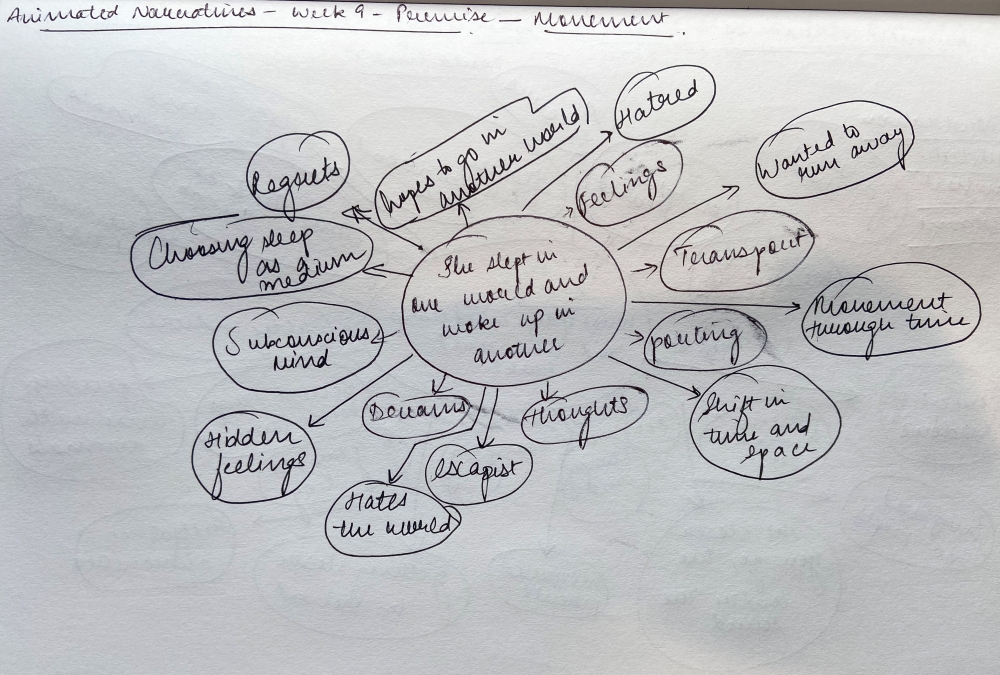 Animated Narratives - Week 9 - Premise - Movement.
Hatred
hopes to go in
another world
Regrets
Feelings
Wanted to
run away
Choosing sleep
as a
medium
She slept in
one world and
woke up in
another
Transport
Movement
through time
Subconscious
mind
Dreams
thoughts
Shift in
time and
space
Hidden
feelings
escapist
Hates
the world